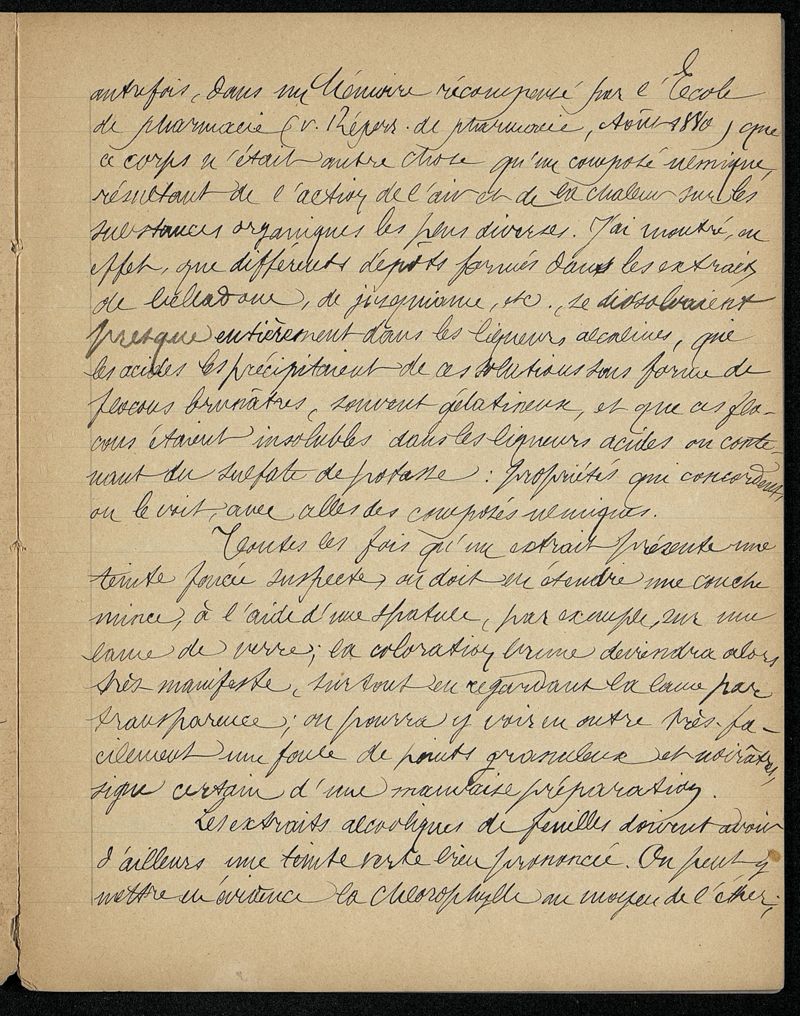 autrefois, dans un Mémoire récompensé par l'École
de pharmacie (v. Répert. de pharmacie, Août 1880) que
ce corps n'était autre chose qu'un composé ulmique,
résultant de l'action de l'air et de la chaleur sur les
substances organiques les plus diverses. J'ai montré, en
effet, que différents dépôts formés dans les extraits
de belladone, de jusquiame, etc., se dissolvaient
presque entièrement dans les liqueurs alcalines, que
les acides les précipitaient de ces solutions sous forme de
flocons brunâtres, souvent gélatineux, et que ces flo-
cons étaient insolubles dans les liqueurs acides ou conte-
nant du sulfate de potasse : propriétés qui concordent,
on le voit, avec celles des composés ulmiques.
Toutes les fois qu'un extrait présente une
teinte foncée suspecte, on doit en étendre une couche
mince, à l'aide d'une spatule, par exemple, sur une
lame de verre ; la coloration brune deviendra alors
très manifeste, surtout en regardant la lame par
transparence ; on pourra y voir en outre très-fa-
cilement une foule de points granuleux et noirâtres,
signe certain d'une mauvaise préparation.
Les extraits alcooliques de feuilles doivent avoir
d'ailleurs une teinte verte bien prononcée. On peut y
mettre en évidence la chlorophylle au moyen de l'éther ;